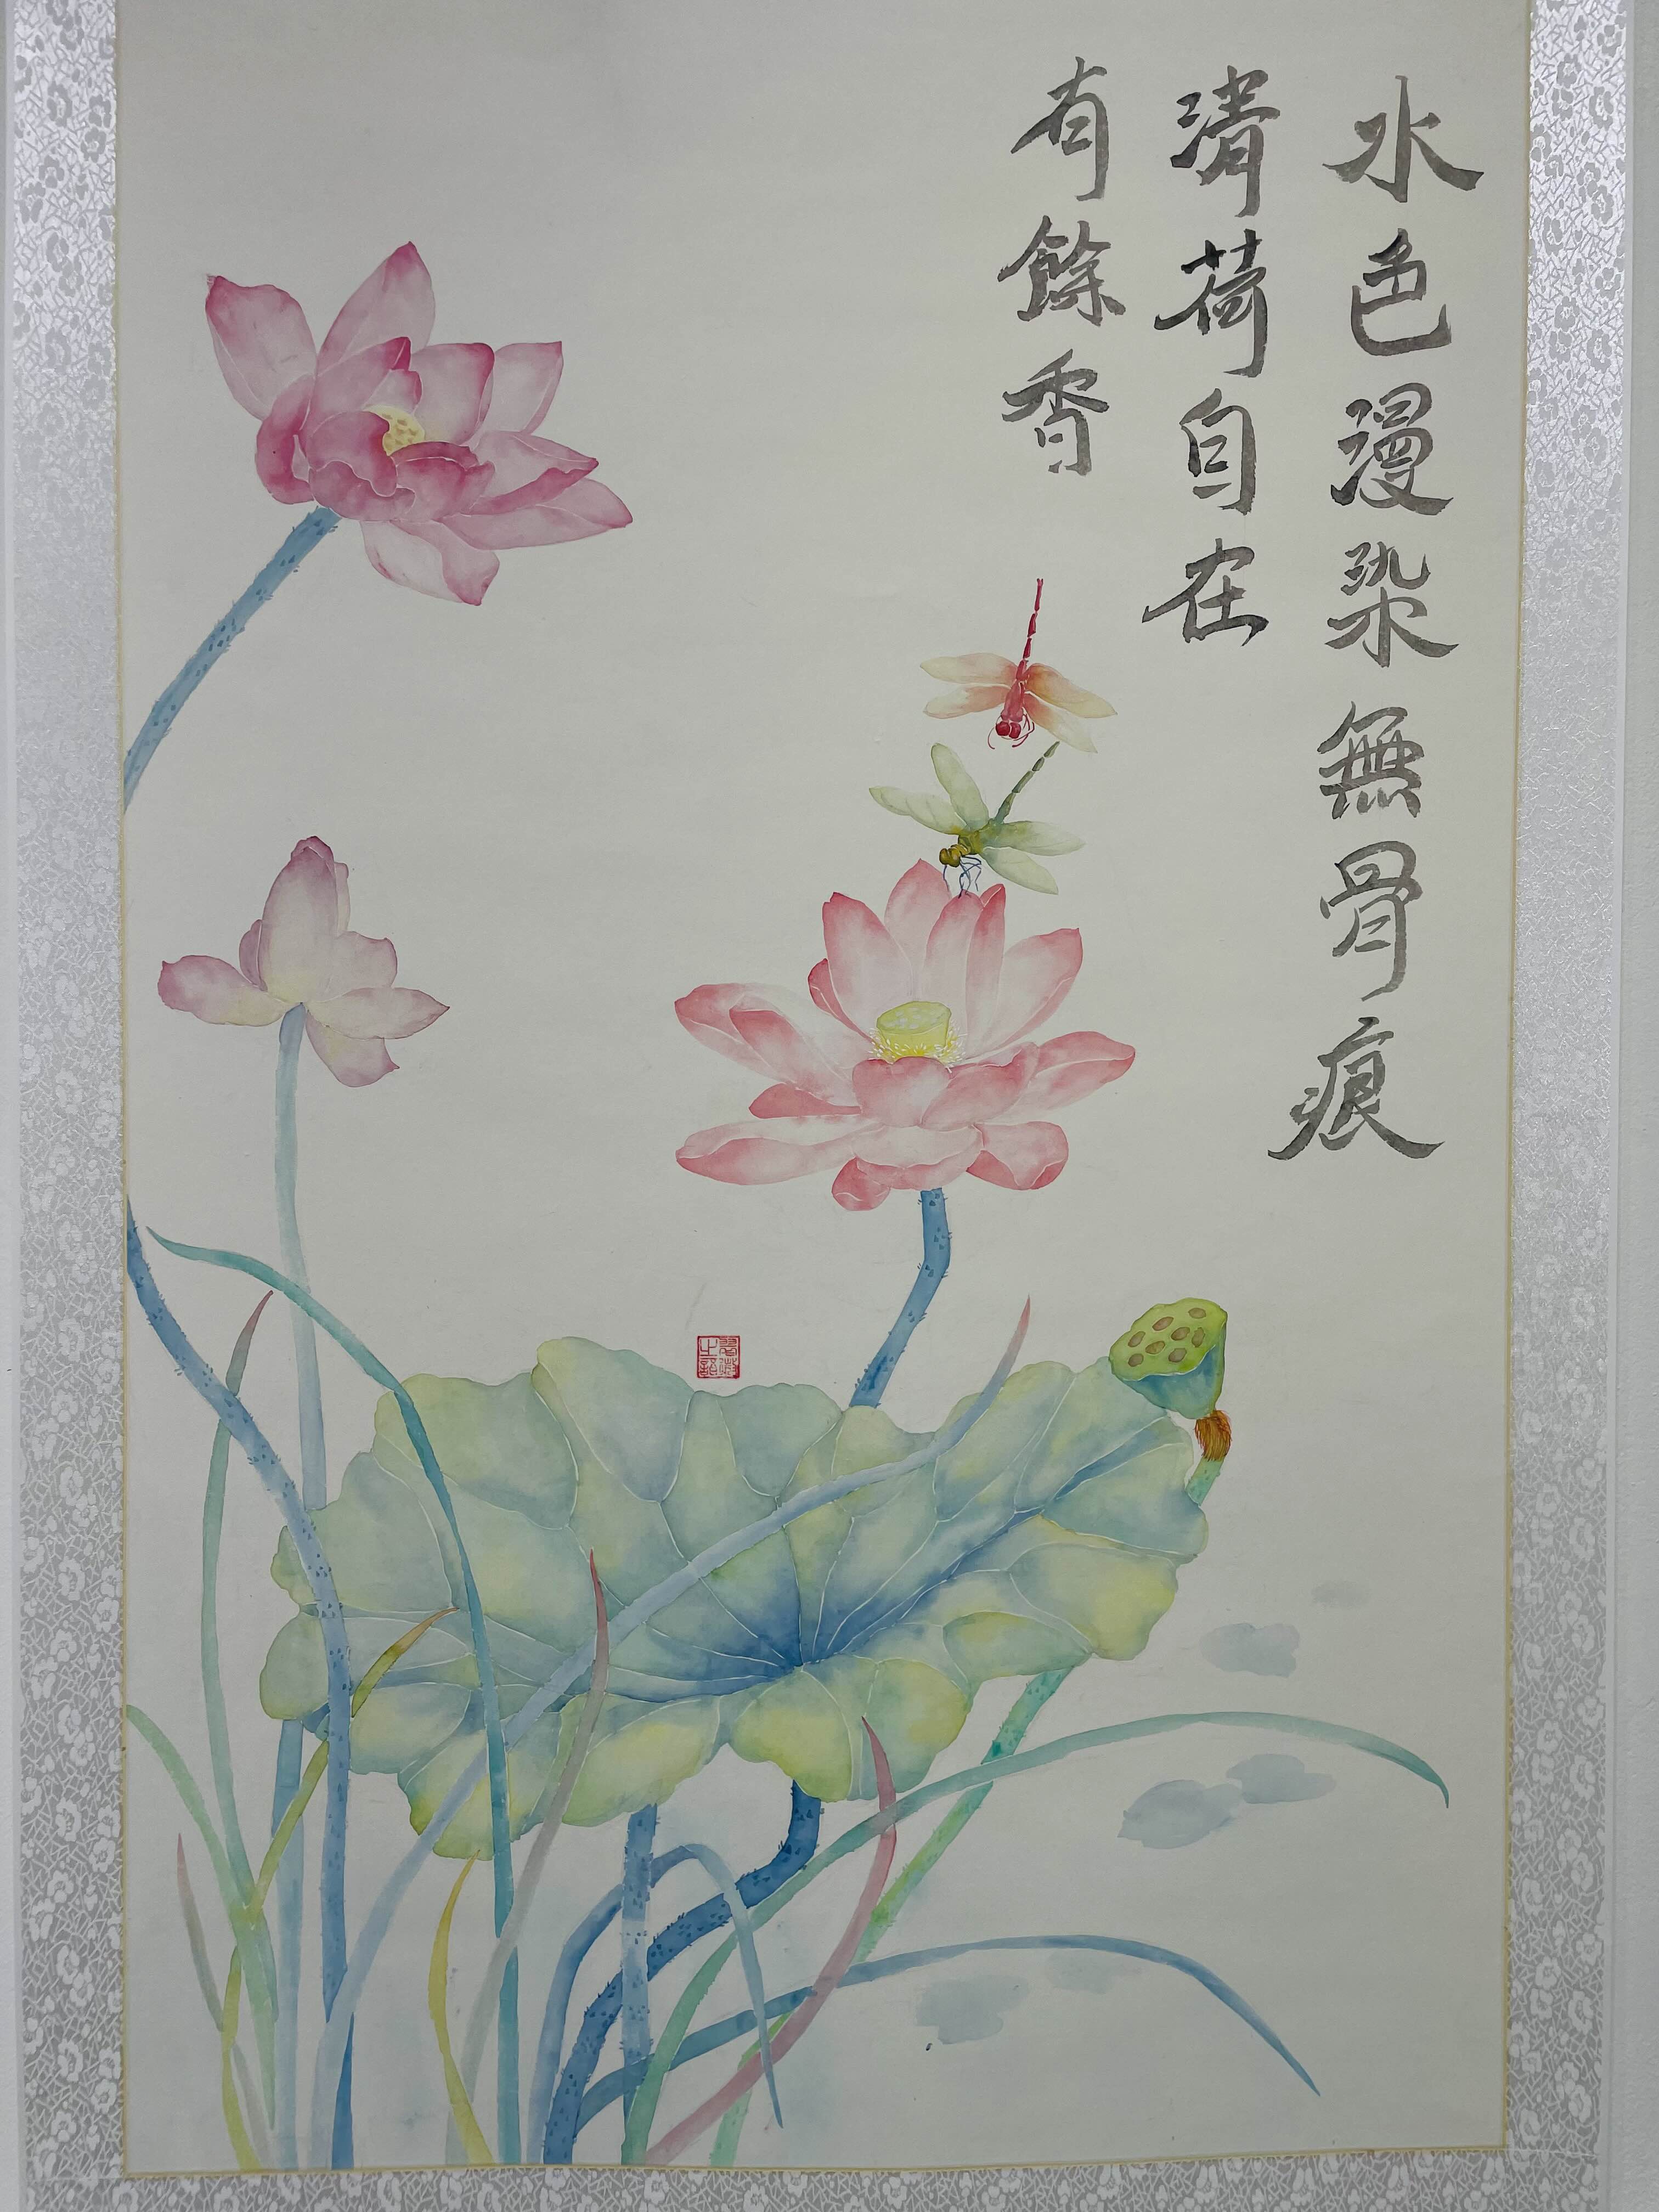 水色漫染無骨痕
清荷自在
有餘香